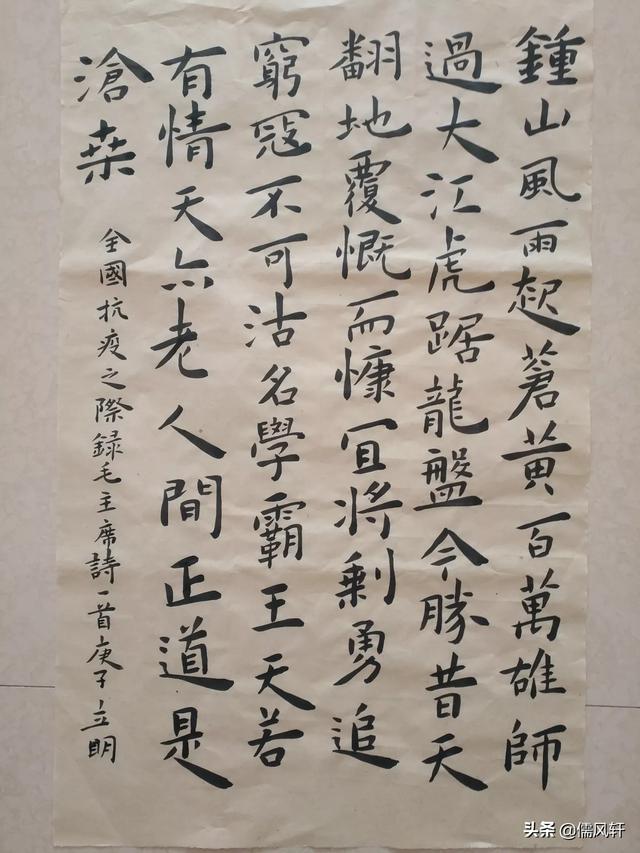 鍾山風雨起蒼黄百萬雄師
過大江虎踞龍盤今勝昔天
翻地覆慨而慷宜將剩勇追
窮寇不可沽名學霸王天若
有情天亦老人間正道是
滄桒
全國抗疫之際録毛主席詩一首庚子立明
头条 @儒风轩